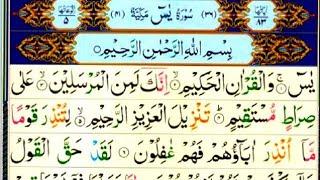 سُوْرَةُ يٰسٓ مَكِّيَّةٌ
(٣٦) (٤١)
٨٣
٥
بِسْمِ اللّٰهِ الرَّحْمٰنِ الرَّحِيْمِ
يٰسٓ ۚ وَالْقُرْاٰنِ الْحَكِيْمِ ۙ اِنَّكَ لَمِنَ الْمُرْسَلِيْنَ ۙ عَلٰى
صِرَاطٍ مُّسْتَقِيْمٍ ؕ تَنْزِيْلَ الْعَزِيْزِ الرَّحِيْمِ ۙ لِتُنْذِرَ قَوْمًا
مَّاۤ اُنْذِرَ اٰبَآؤُهُمْ فَهُمْ غٰفِلُوْنَ لَقَدْ حَقَّ الْقَوْلُ